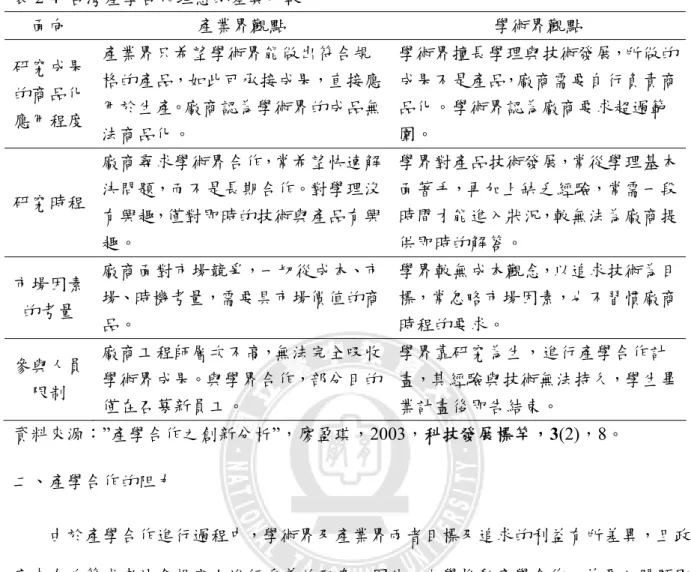 面向 產業界觀點 學術界觀點
研究成果
的商品化
應用程度
產業界只希望學術界能做出符合規
格的產品，如此可承接成果，直接應
用於生產。廠商認為學術界的成品無
法商品化。
學術界擅長學理與技術發展，所做的
成果不是產品，廠商需要自行負責商
品化。學術界認為廠商要求超過範
圍。
研究時程
廠商尋求學術界合作，常希望快速解
決問題，而不是長期合作。對學理沒
有興趣，僅對即時的技術與產品有興
趣。
學界對產品技術發展，常從學理基本
面著手，再加上缺乏經驗，常需一段
時間才能進入狀況，較無法為廠商提
供即時的解答。
市場因素
的考量
廠商面對市場競爭，一切從成本、市
場、時機考量，需要具市場價值的商
品。
學界較無成本觀念，以追求技術為目
標，常忽略市場因素，也不習慣廠商
時程的要求。
參與人員
限制
廠商工程師層次不高，無法完全吸收
學術界成果。與學界合作，部分目的
僅在召募新員工。
學界靠研究為生，進行產學合作計
畫，其經驗與技術無法持久，學生畢
業計畫後即告結束。
資料來源：”產學合作之創新分析”，廖盈琪，2003，科技發展標竿，3(2)，8。
二、產學合作的阻力
由於產學合作進行過程中，學術界及產業界兩者目標及追求的利益有所差異，且政
NATIONAL UNIVERSITY